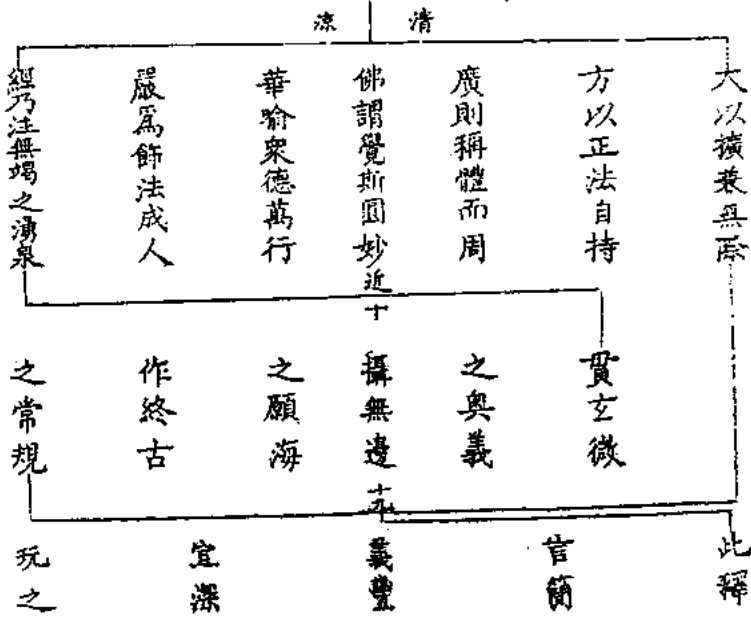 清涼
大以擴兼無際
方以正法自持
廣則稱體而周
佛謂覺斯圓妙
華喻衆德萬行
嚴爲飾法成人
經乃注無竭之湧泉
近十
貫玄微
之奧義
攝無邊
之願海
作終古
之常規
十九
此釋
言簡
義豐
宜深
玩之